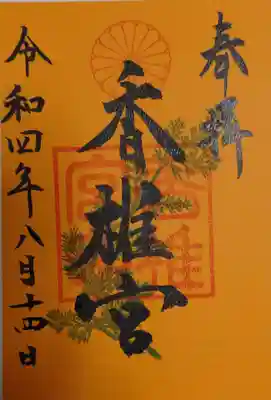 奉拝
香椎宮
令和四年八月十四日